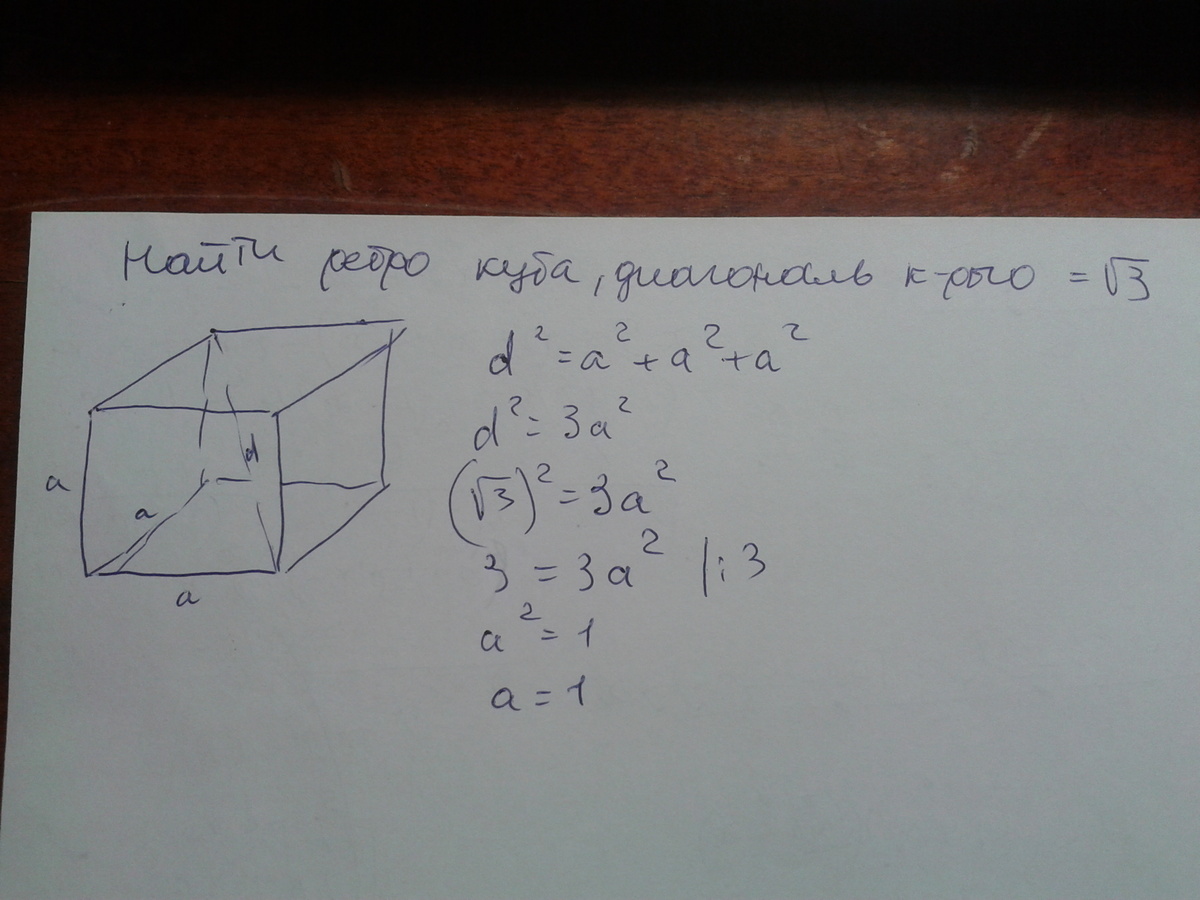 Найти ребро куба, диагональ к-рого = √3
d² = a² + a² + a²
d² = 3a²
(√3)² = 3a²
3 = 3a² |:3
a² = 1
a = 1
a
a
a
d